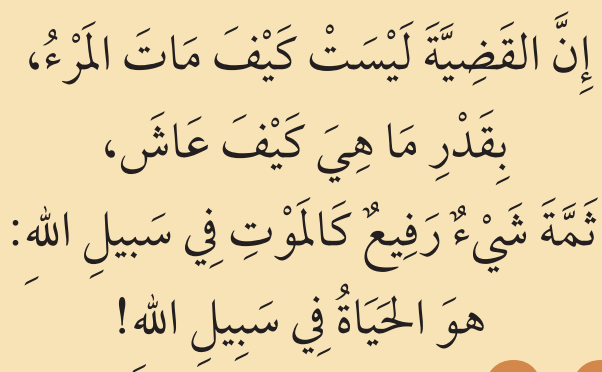 إِنَّ القَضِيَّةَ لَيْسَتْ كَيْفَ مَاتَ المَرْءُ،
بِقَدْرِ مَا هِيَ كَيْفَ عَاشَ،
ثَمَّةَ شَيْءٌ رَفِيعٌ كَالمَوْتِ فِي سَبيلِ اللهِ:
هوَ الحَيَاةُ فِي سَبِيلِ اللهِ!